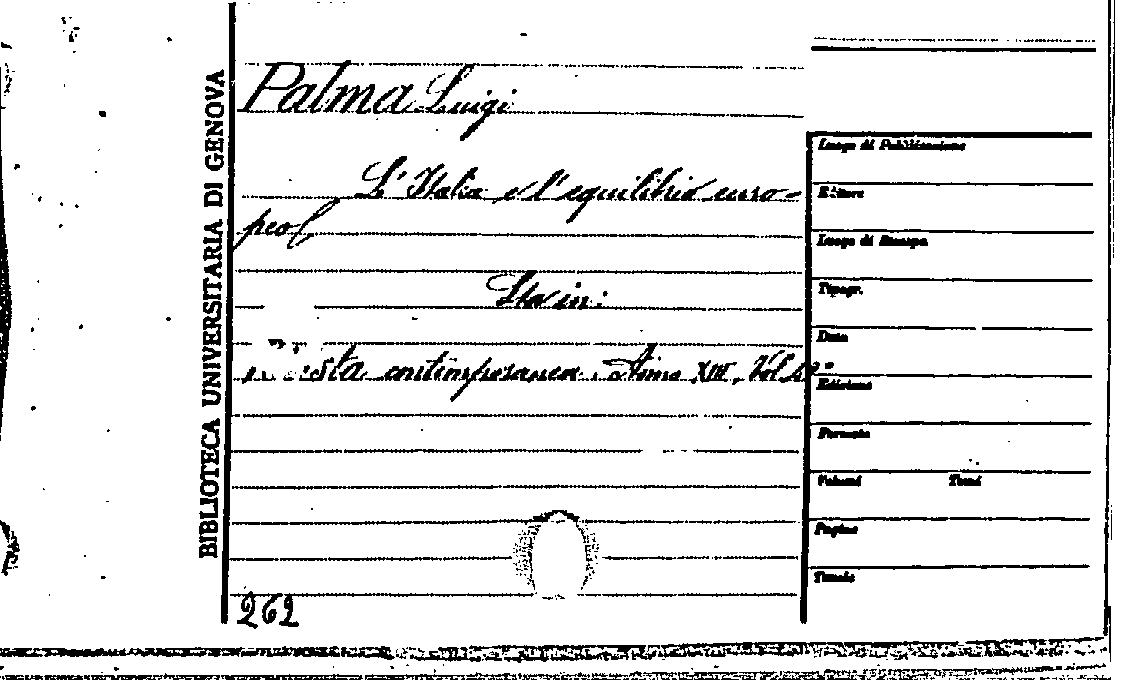 BIBLIOTECA UNIVERSITARIA DI GENOVA
Palma Luigi
L'Italia e l'equilibrio euro=
peo
Sta in:
contemporanea. Anno XIII, Vol.
262
Luogo di Pubblicazione
Editore
Luogo di Stampa
Tipogr.
Data
Edizione
Formato
Volumi Tomi
Pagine
Tavole